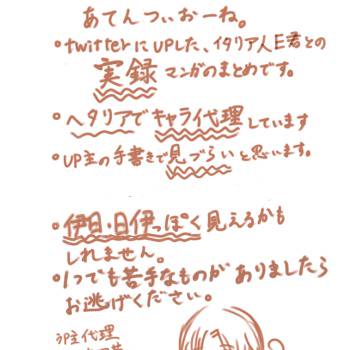 あてんつぃおーね。
•twitterにUPした、イタリア人E君との
実録マンガのまとめです。
•ヘタリアでキャライ代理しています
•UP主の手書きで見づらいと思います。
•伊日・日伊っぽく見えるかも
しれません。
•1つでも苦手なものがありましたら
お逃げください。
うP主代理